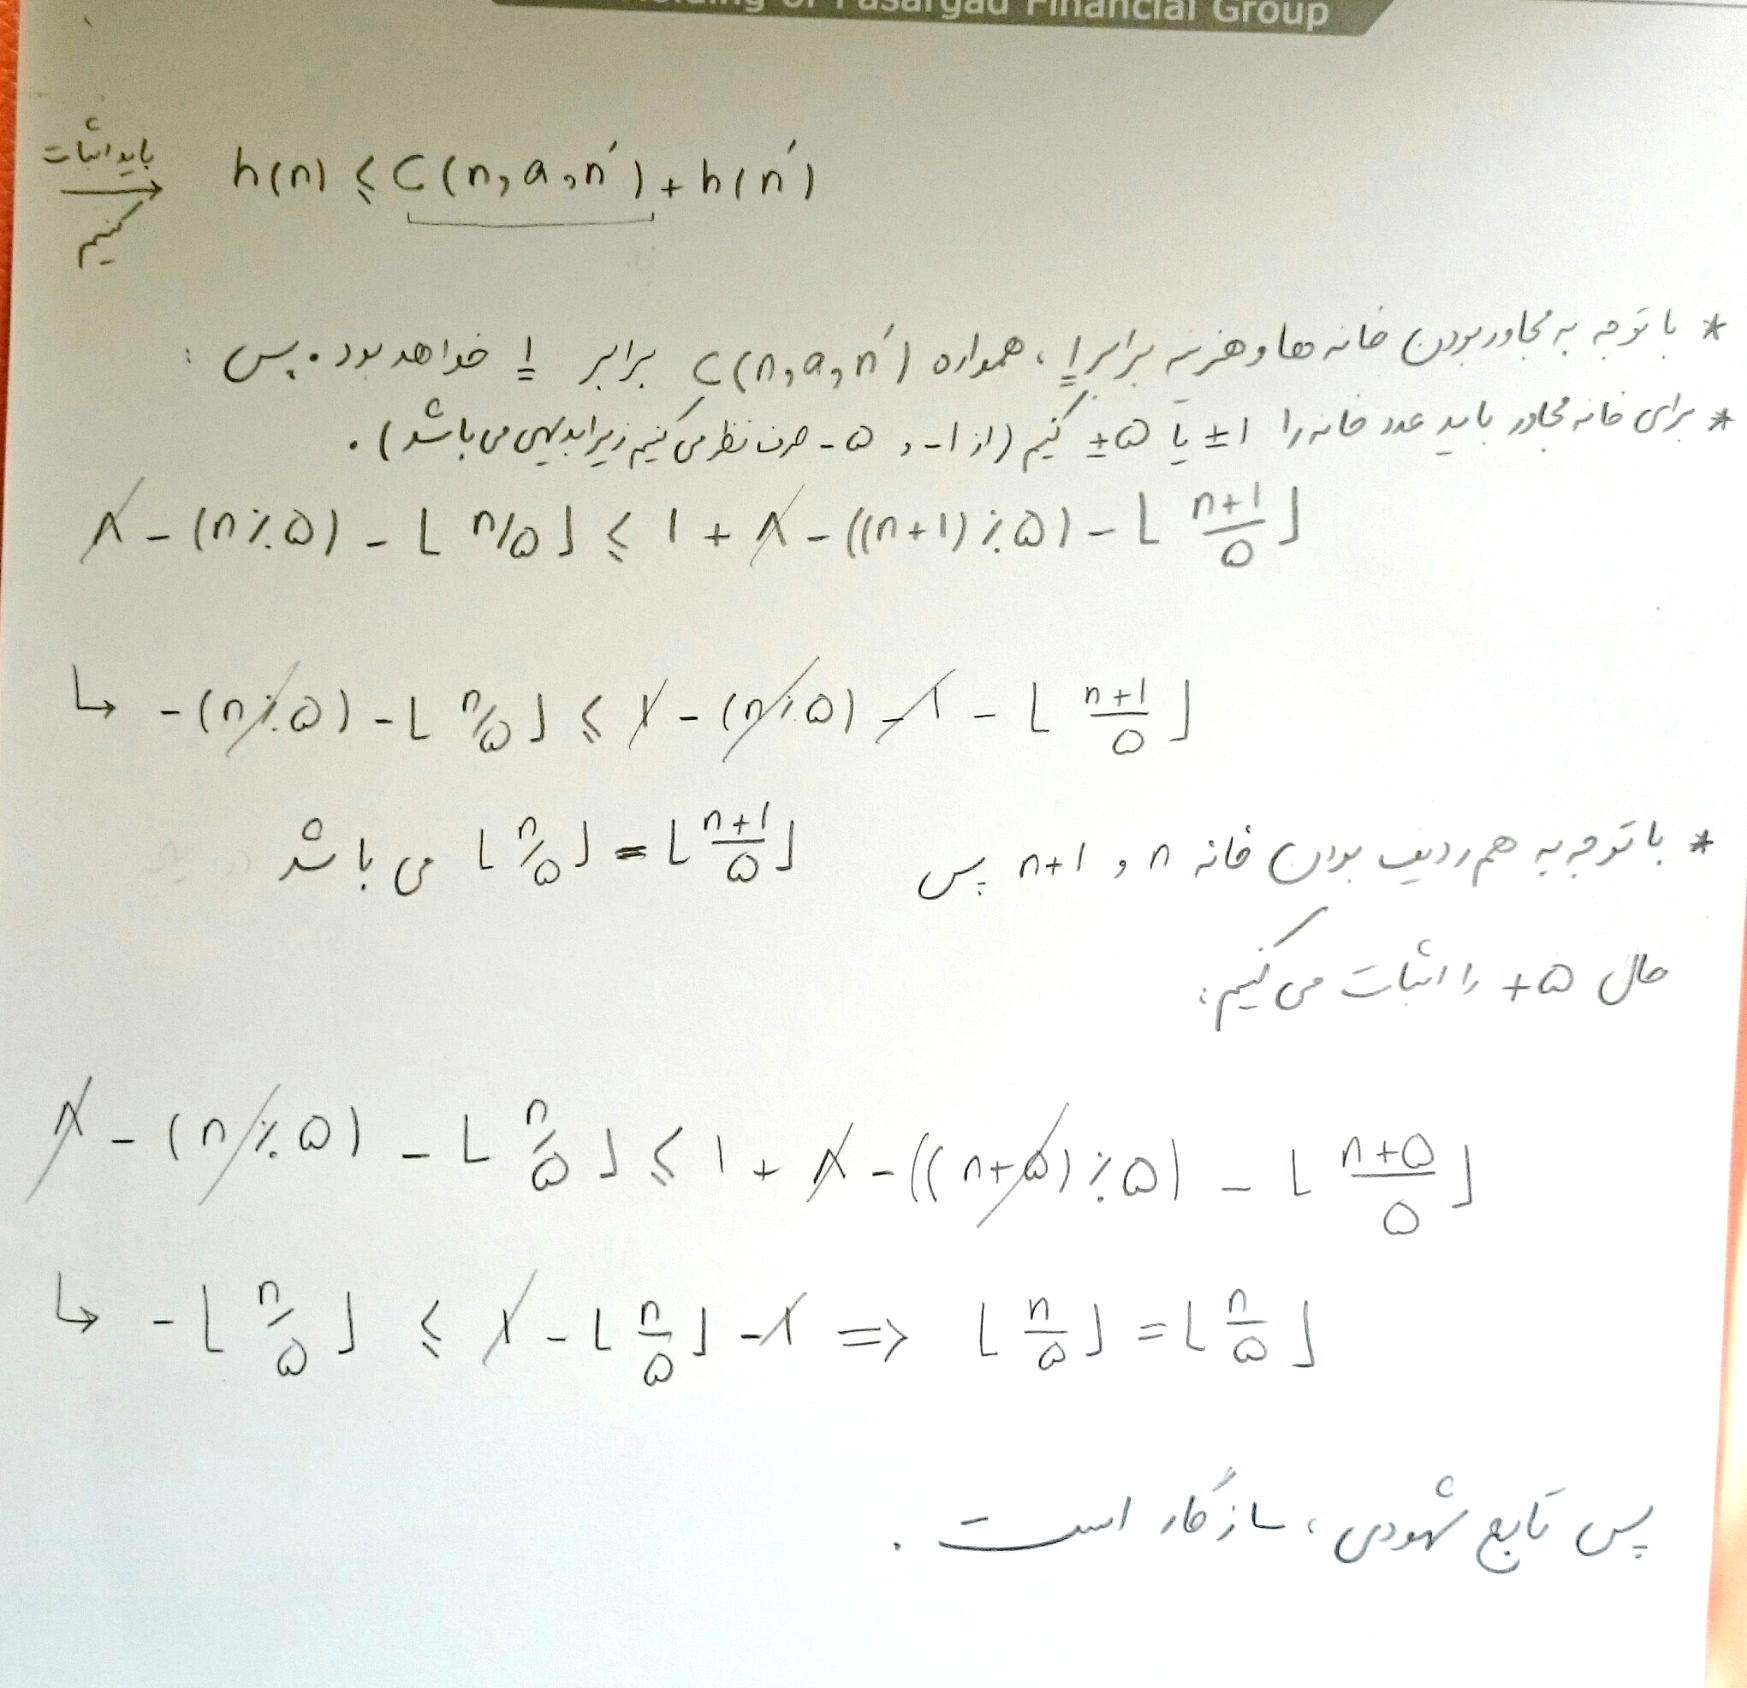 Holding of Pasargad Financial Group
باید اثبات کنیم → h(n) ≤ C(n, a, n′) + h(n′)
* با توجه به مجاور بودن خانه ها و هزینه برابر ۱، همواره C(n, a, n′) برابر ۱ خواهد بود. پس :
* برای خانه مجاور باید عدد خانه را ±۱ یا ±۵ کنیم (از ۱- و ۵- صرف نظر می کنیم زیرا بدیهی می باشد).
۸ - (n٪۵) - ⌊n/۵⌋ ≤ ۱ + ۸ - ((n+۱)٪۵) - ⌊(n+۱)/۵⌋
↳ -(n٪۵) - ⌊n/۵⌋ ≤ ۱ - (n٪۵) - ۱ - ⌊(n+۱)/۵⌋
* با توجه به هم ردیف بودن خانه n و n+۱ پس ⌊n/۵⌋ = ⌊(n+۱)/۵⌋ می باشد
حال ۵+ را اثبات می کنیم:
۸ - (n٪۵) - ⌊n/۵⌋ ≤ ۱ + ۸ - ((n+۵)٪۵) - ⌊(n+۵)/۵⌋
↳ -⌊n/۵⌋ ≤ ۱ - ⌊n/۵⌋ - ۱ ⇒ ⌊n/۵⌋ = ⌊n/۵⌋
پس تابع شهودی، سازگار است.